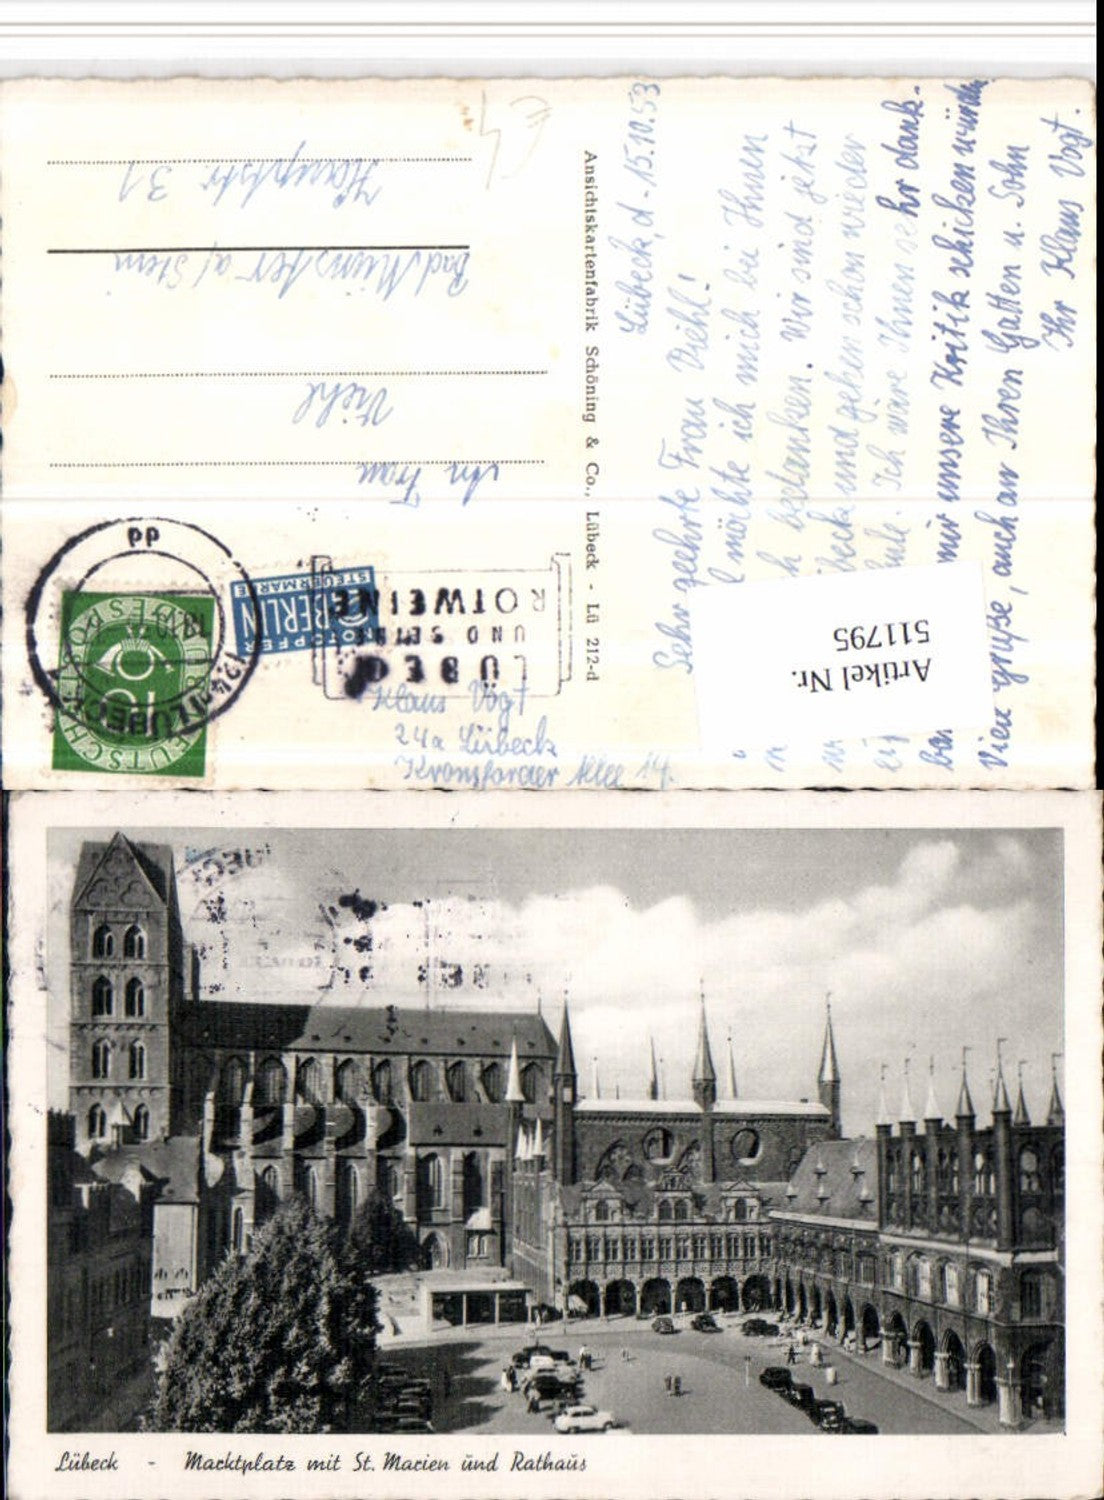 Lübeck, d. 15.10.53
Sehr geehrte Frau Diehl!
möchte ich mich bei Ihnen
bedanken. Wir sind jetzt
und gehen schon wieder
Ich wäre Ihnen sehr dank-
bar mir unsere Kritik schicken würden.
Viele Grüße, auch an Ihren Gatten u. Sohn
Ihr Klaus Vogt.
Ansichtskartenfabrik Schöning & Co., Lübeck - Lü 212-d
Artikel Nr.
511795
An Frau
Diehl
Bad Münster a/Stein
Hauptstr. 31
Klaus Vogt
24a Lübeck
Kronsforder Allee 14.
DEUTSCHE BUNDESPOST
10
LÜBECK
pp
NOTOPFER
2 BERLIN
STEUERMARKE
LÜBECK
UND SEINE
ROTWEINE
Lübeck - Marktplatz mit St. Marien und Rathaus